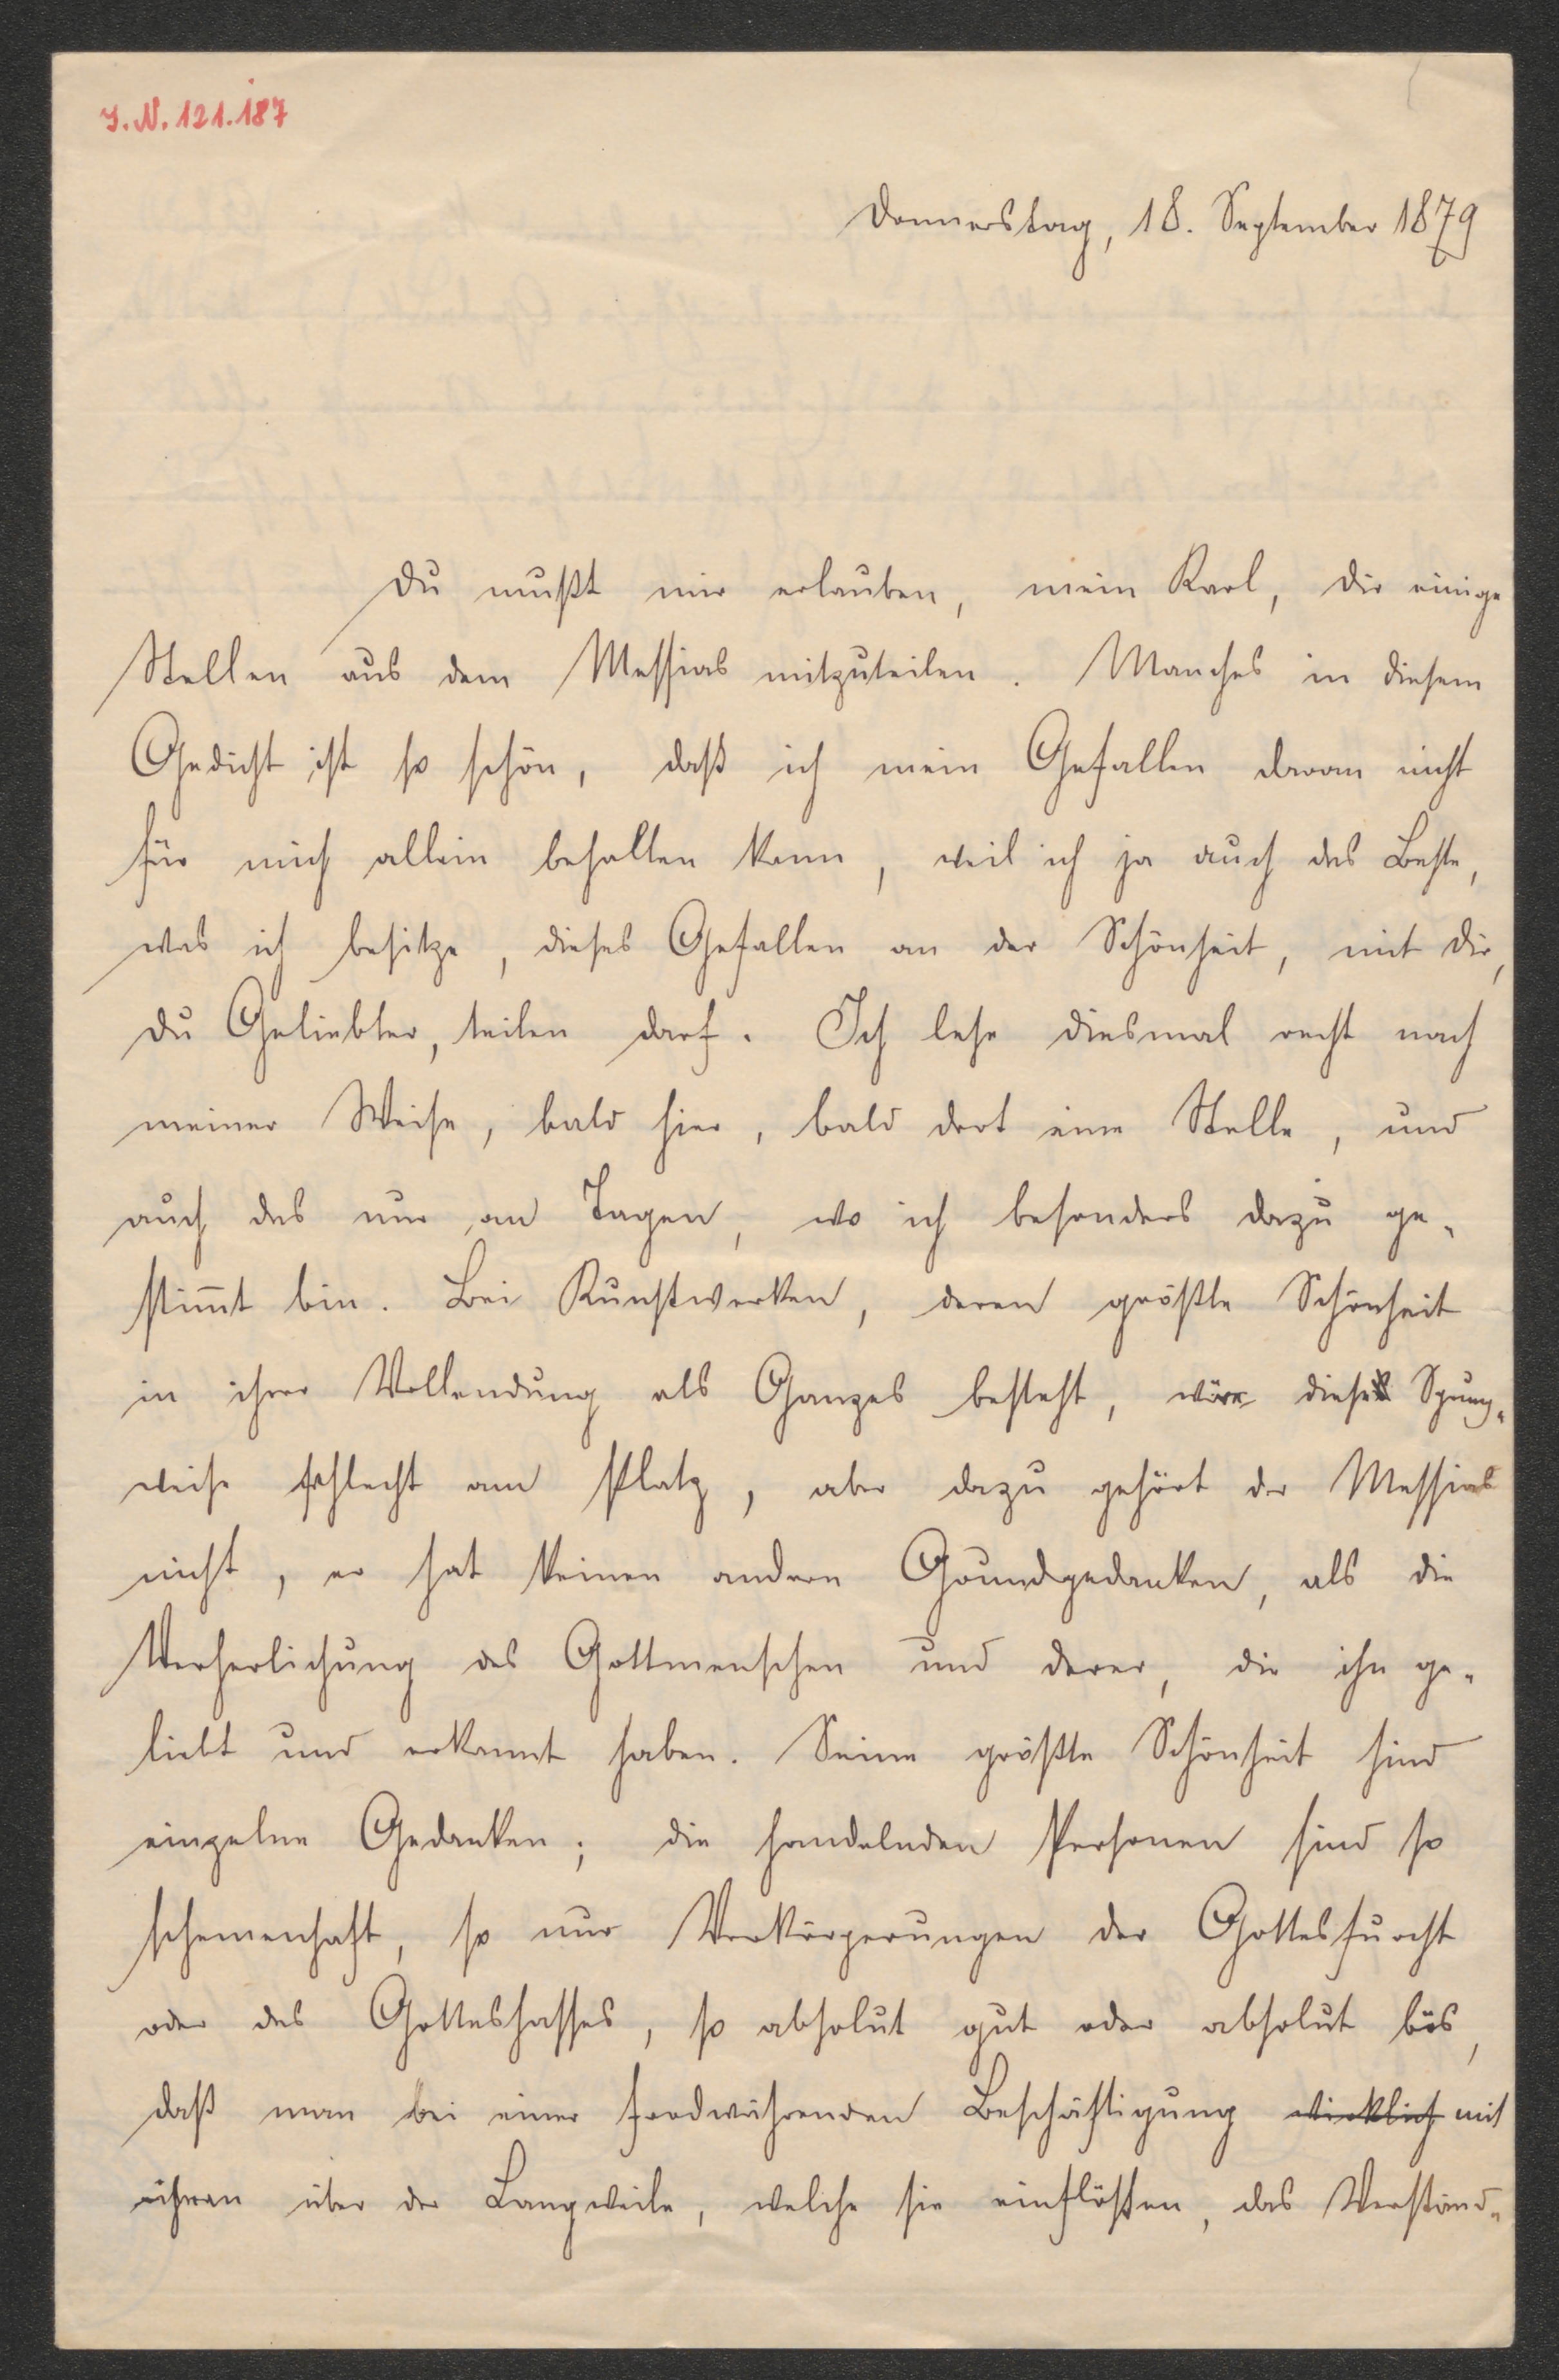 I.N. 121.187
Donnerstag, 18. September 1879
Du mußt mir erlauben, mein Karl, dir einige
Stellen aus dem Messias mitzuteilen. Manches in diesem
Gedicht ist so schön, daß ich mein Gefallen daran nicht
für mich allein behalten kann, weil ich ja auch das Beste,
was ich besitze, dieses Gefallen an der Schönheit, mit dir,
du Geliebter, teilen darf. Ich lese diesmal recht nach
meiner Weise, bald hier, bald dort eine Stelle, und
auch das nur an Tagen, wo ich besonders dazu ge-
stim̄t bin. Bei Kunstwerken, deren größte Schönheit
in ihrer Vollendung als Ganzes besteht, wäre diese
weise schlecht am Platz, aber dazu gehört der Messias
nicht, er hat keinen andern Grundgedanken, als die
Verherlichung des Gottmenschen und derer, die ihn ge-
liebt und erkannt haben. Seine größte Schönheit sind
einzelne Gedanken; die handelnden Personen sind so
schemenhaft, so nur Verkörperungen der Gottesfurcht
oder des Gotteshasses, so absolut gut oder absolut bös,
daß man bei einer fordwährenden Beschäftigung wirklich mit
ihnen über der Langweile, welche sie einflößen, das Verständ-